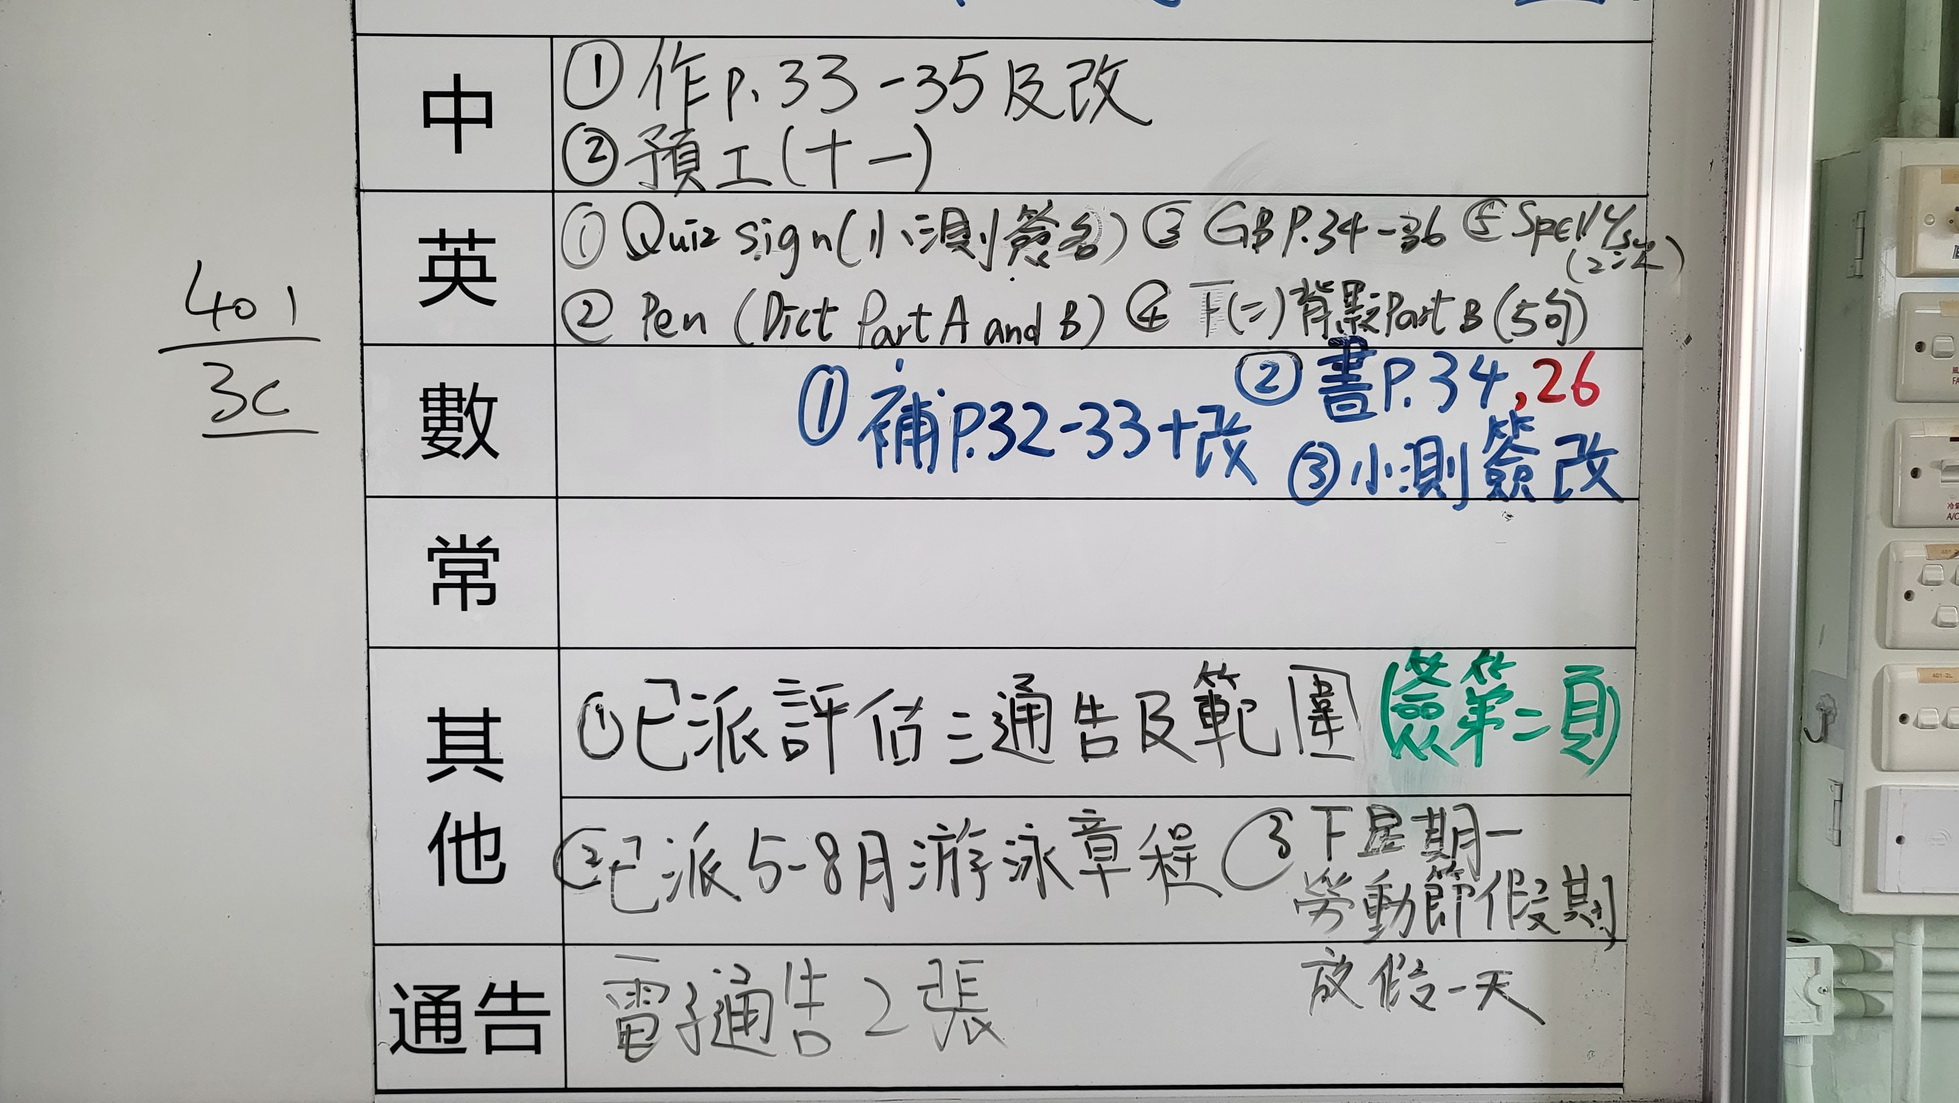 401
3C
中
①作p.33-35及改
②預工(十一)
英
①Quiz sign(小測簽名) ③ GB P.34-36 ⑤ Spell
② Pen (Dict Part A and B) ④ 下(二)背默Part B (5句)
數
①補P.32-33+改
②書P.34,26
③小測簽改
常
其他
①已派評估三通告及範圍(簽第二頁)
②已派5-8月游泳章程
③下星期一
勞動節假期
放假一天
通告
電子通告2張